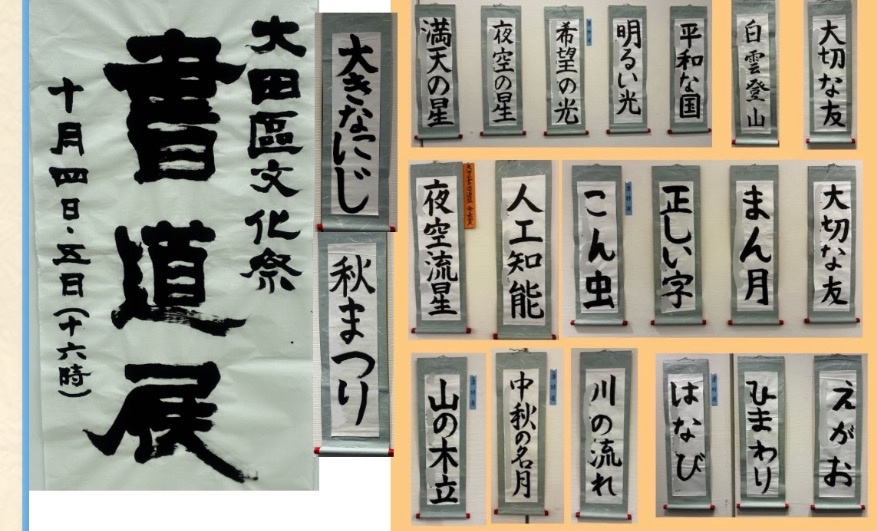 大田區文化祭
書道展
十月四日・五日(十六時)
大きなにじ
秋まつり
満天の星
夜空の星
希望の光
明るい光
平和な国
白雲登山
大切な友
夜空流星
人工知能
こん虫
正しい字
まん月
大切な友
山の木立
中秋の名月
川の流れ
はなび
ひまわり
えがお